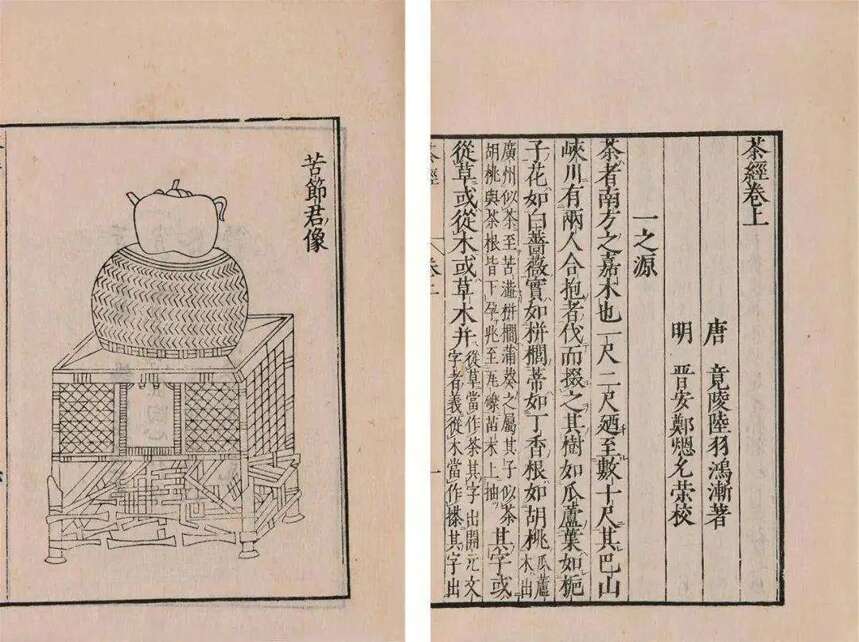 茶經卷上
唐 竟陵陸羽鴻漸著
明 晋安鄭熜允榮校
一之源
茶者南方之嘉木也一尺二尺廼至數十尺其巴山
峽川有兩人合抱者伐而掇之其樹如瓜蘆葉如梔
子花如白薔薇實如栟櫚蒂如丁香根如胡桃瓜蘆木出
廣州似茶至苦澁栟櫚蒲葵之屬其子似茶胡桃與茶根皆下孕兆至瓦礫苗木上抽其字或
從草或從木或草木并從草當作茶其字出開元文字者義從木當作搽其字出
苦節君像